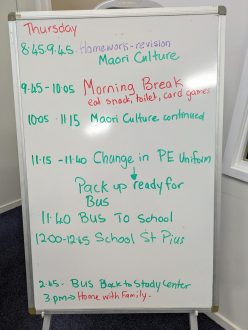 Thursday
8:45-9.45 Homework-revision
Maori Culture
9.45-10.05 Morning Break
eat snack, toilet, card games
10.05 - 11.15 Maori Culture continued
11.15 - 11.40 Change in PE Uniform
Pack up ready for
Bus
11.40 Bus To school
12.00-12.45 School St Pius
2.45 - Bus Back to Study Center
3.pm → Home with Family.